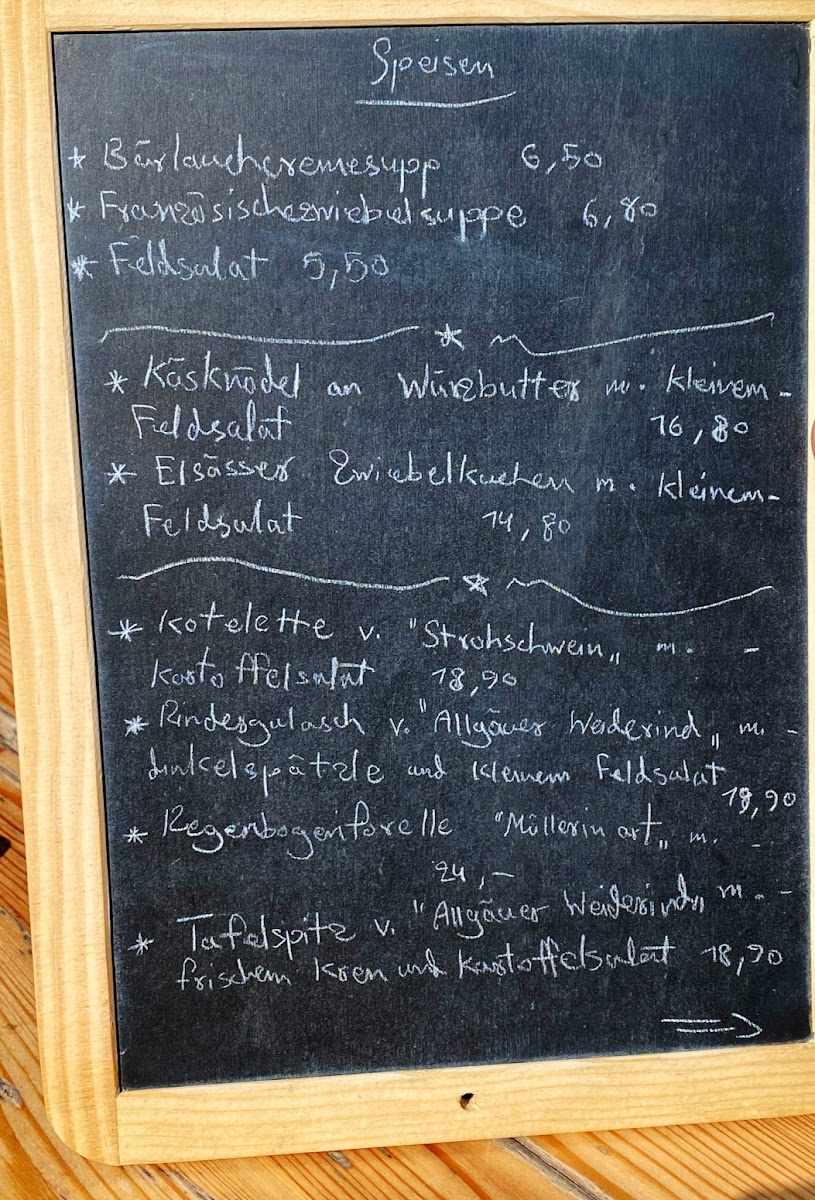 Speisen
* Bärlauchcremesupp 6,50
* Französischezwiebelsuppe 6,80
* Feldsalat 5,50
* Käsknödel an Würzbutter m. kleinem-
Feldsalat 16,80
* Elsässer Zwiebelkuchen m. kleinem-
Feldsalat 14,80
* Kotelette v. "Strohschwein„ m. -
Kartoffelsalat 18,90
* Rindergulasch v. "Allgäuer Weiderind„ m. -
dinkelspätzle und kleinem Feldsalat
19,90
* Regenbogenforelle "Müllerin art„ m. -
24,-
* Tafelspitz v. "Allgäuer Weiderind„ m. -
frischem Kren und Kartoffelsalat 18,90